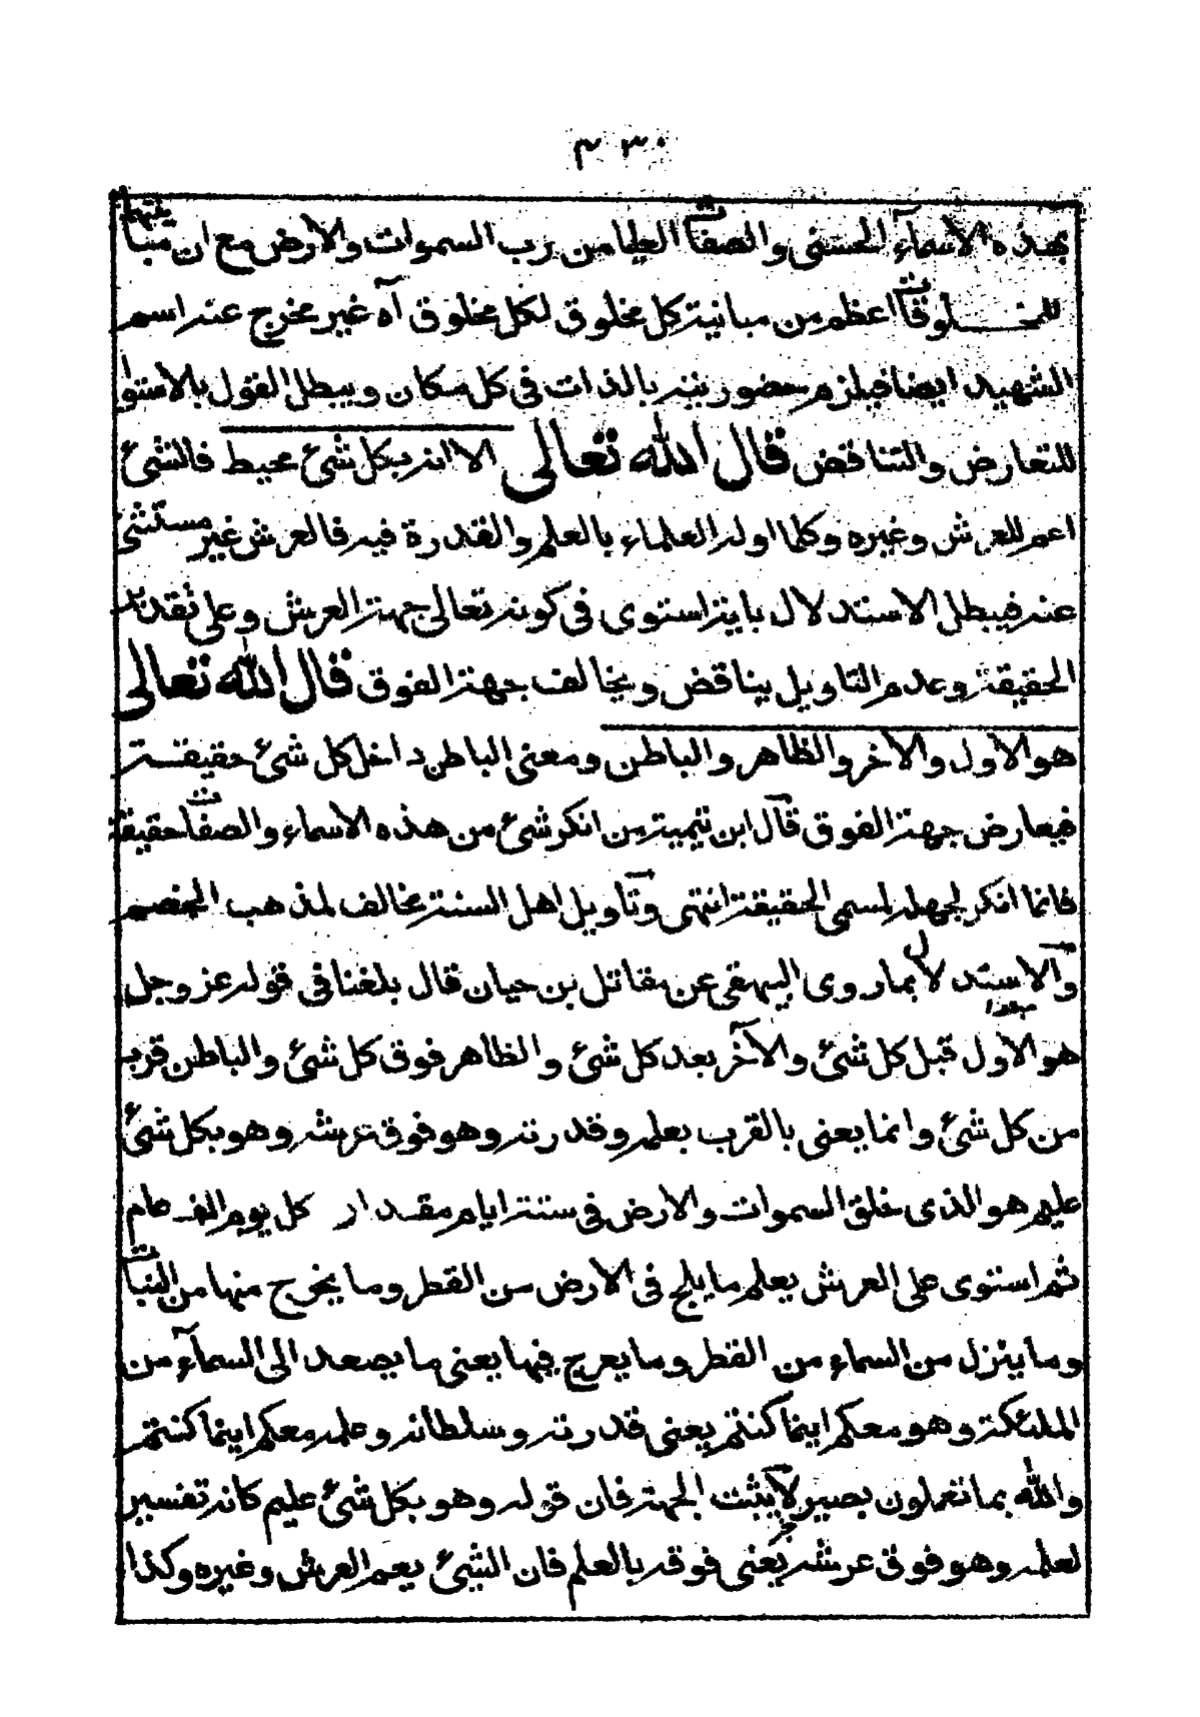 ٤٣٠
بهذه الاسمآء الحسنى والصفات العليا من رب السموات والارض مع ان مباينتها
للمخـــلوقات اعظم من مبانية كل مخلوق لكل مخلوق آه غير مخرج عنه اسم
الشهيد ايضا فيلزم حضوريته بالذات فى كل مكان ويبطل القول بالاستواء
للتعارض والتناقض قال الله تعالى الا انه بكل شئ محيط فالشئ
اعم للعرش وغيره وكلما اوله العلماء بالعلم والقدرة فيه فالعرش غير مستثنى
عنه فيبطل الاستدلال باية استوى فى كونه تعالى جهة العرش وعلى تقدير
الحقيقة وعدم التاويل يناقض ويخالف جهة الفوق قال الله تعالى
هو الاول والاخر والظاهر والباطن ومعنى الباطن داخل كل شئ حقيقة
فيعارض جهة الفوق قال ابن تيمية من انكر شئ من هذه الاسماء والصفات حقيقة
فانما انكر لجهله لمسمى الحقيقة انتهى وتاويل اهل السنة مخالف لمذهب الخصم
والاستدلال بما روى البيهقى عن مقاتل بن حيان قال بلغنا فى قوله عز وجل
هو الاول قبل كل شئ والآخر بعد كل شئ والظاهر فوق كل شئ والباطن قرب
من كل شئ وانما يعنى بالقرب بعلمه وقدرته وهو فوق عرشه وهو بكل شئ
عليم هو الذى خلق السموات والارض فى ستة ايام مقدار كل يوم الف عام
ثم استوى على العرش يعلم ما يلج فى الارض من القطر وما يخرج منها من النبات
وما ينزل من السماء من القطر وما يعرج فيها يعنى ما يصعد الى السمآء من
الملئكة وهو معكم اينما كنتم يعنى قدرته وسلطانه وعلمه معكم اينما كنتم
والله بما تعملون بصير لا يثبت الجهة فان قوله وهو بكل شئ عليم كانه تفسير
لعلمه وهو فوق عرشه يعنى فوقه بالعلم فان الشئ يعم العرش وغيره وكذا